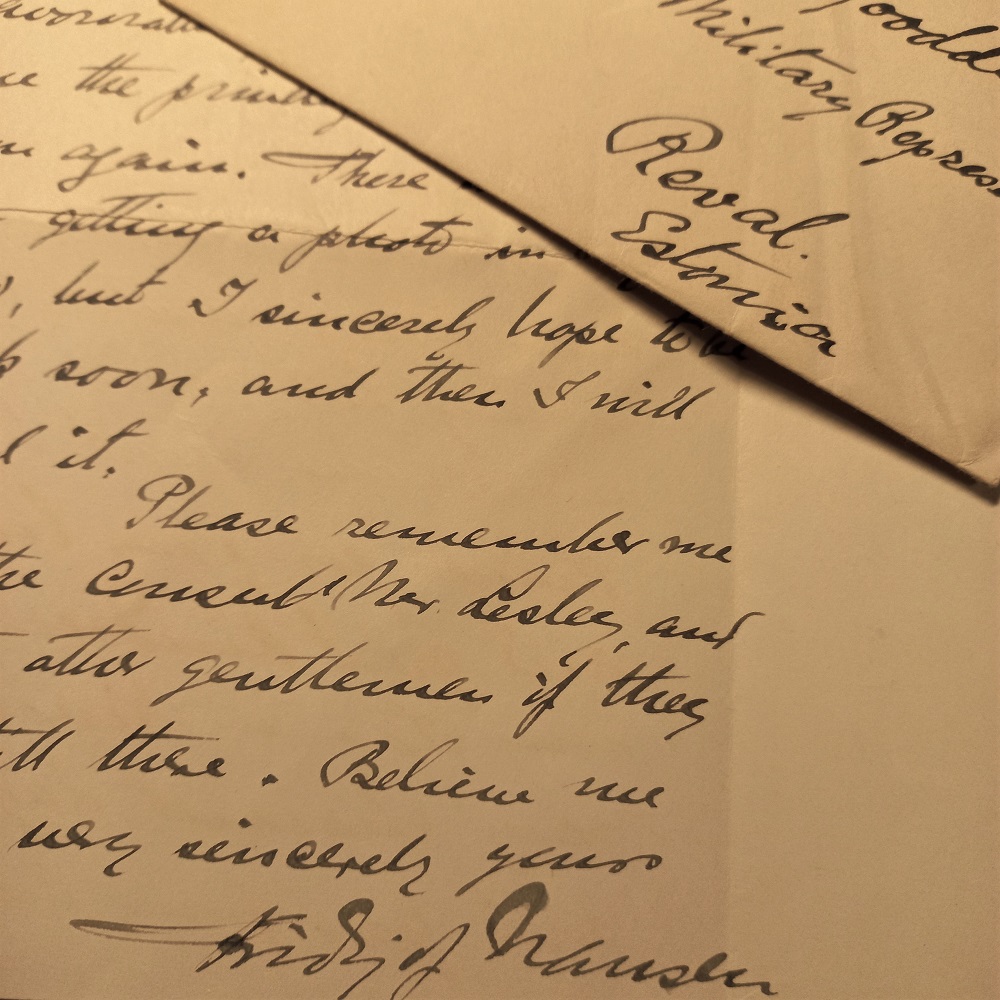 the
again. There
getting a photo in
, but I sincerely hope to be
soon, and then I will
it.
Please remember me
the consul Mr. Lesley, and
other gentlemen if they
still there. Believe me
very sincerely yours
Fridtjof Nansen
Military Represe
Reval.
Estonia